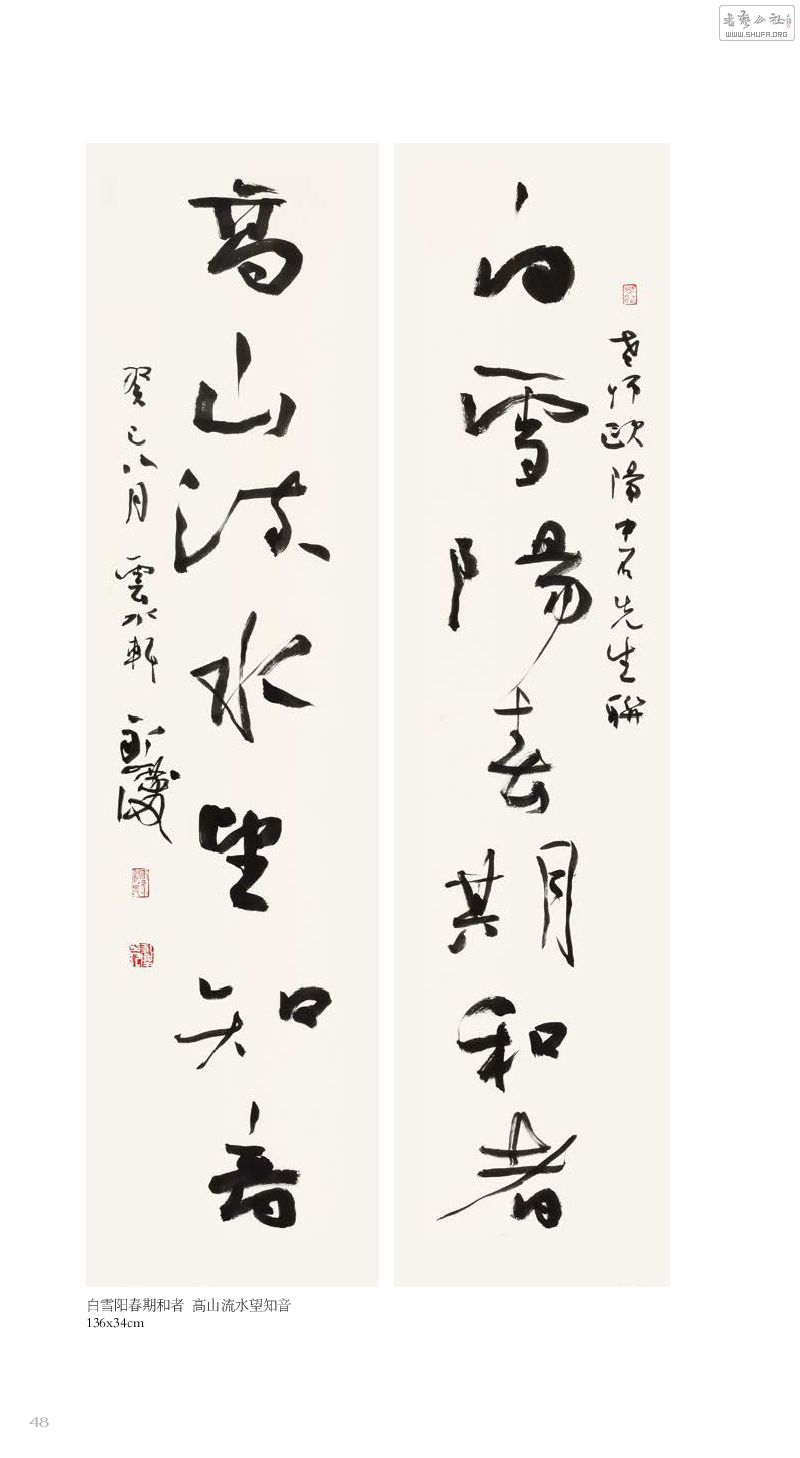 书艺公社
WWW.SHUFA.ORG
老师欧陽中石先生聯
白雪陽春期和者
高山流水望知音
癸巳八月 雲水軒
白雪阳春期和者 高山流水望知音
136x34cm
48